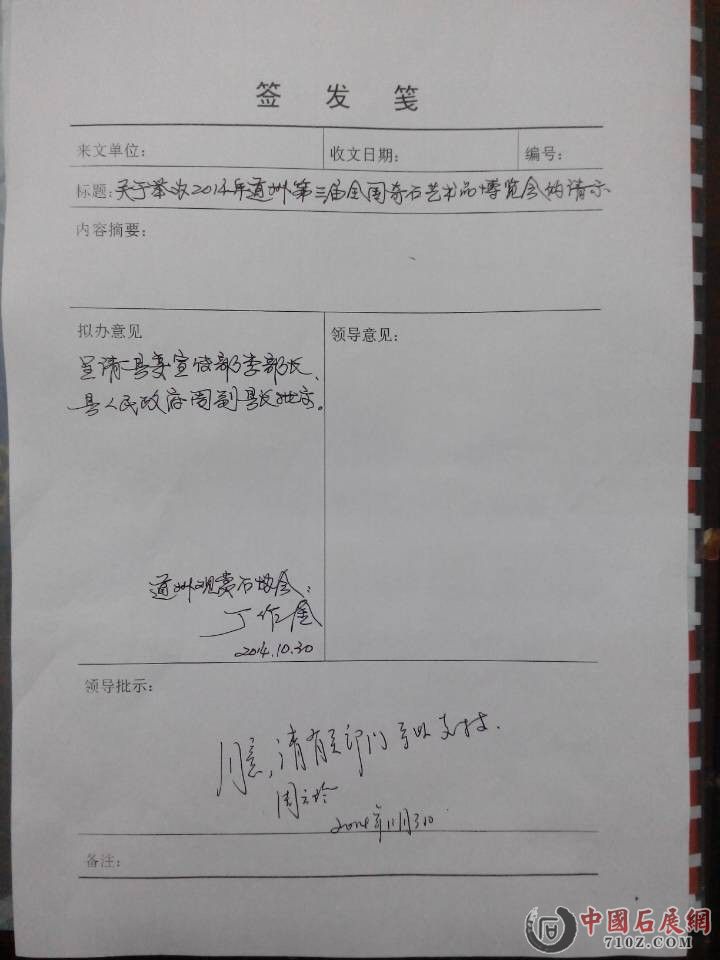 签 发 笺
来文单位： 收文日期： 编号：
标题：关于举办2014年道州第三届全国奇石艺术品博览会的请示
内容摘要：
拟办意见 领导意见：
呈请县委宣传部李部长、
县人民政府周副县长批示。
道州观赏石协会：
丁作金
2014.10.30
领导批示：
同意，请有关部门予以支持.
周
2014年11月3日
备注：
中國石展網
710Z.COM